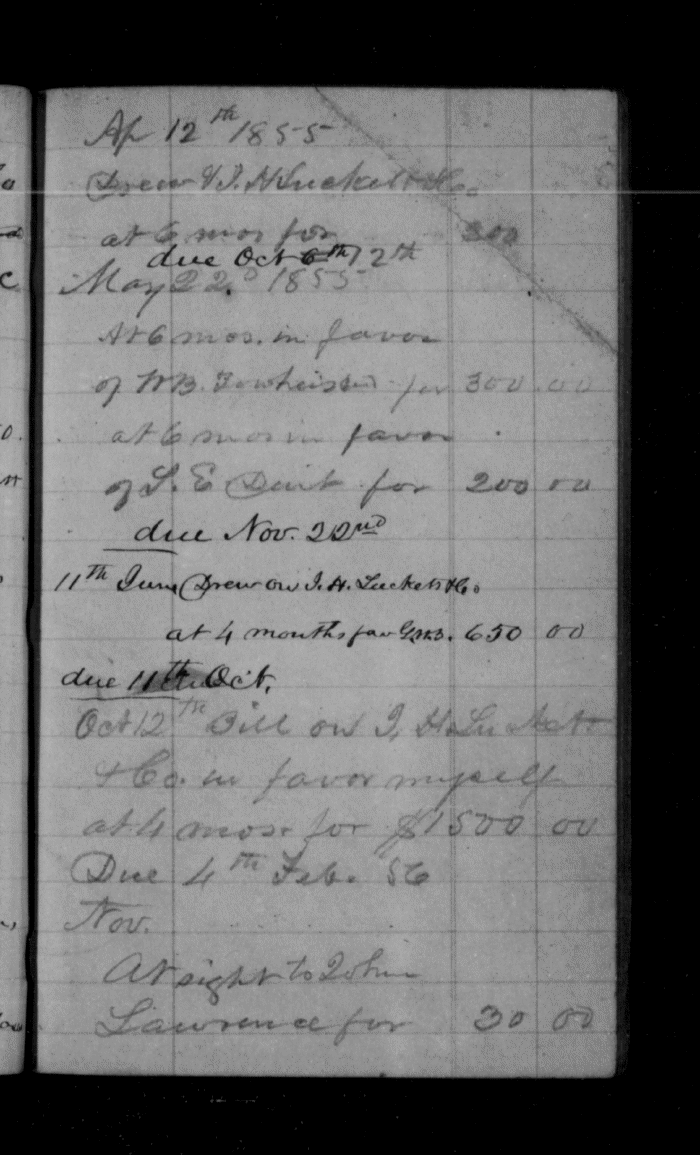 Ap 12th 1855
Drew I. H Luckett & Co
at 6 mos for 300
due Oct 6th 12th
May 22d 1855
At 6 mos. in favor
of W B. for 300 00
at 6 mos in favor
of S. E for 200 00
due Nov. 22nd
11th June Drew on I. H. Luckett & Co
at 4 months fav 650 00
due 11th Oct.
Oct 12th Bill on I, H. Luckett
& Co. in favor myself
at 4 mos. for $1500 00
Due 4th Feb. 56
Nov.
At sight to John
Lawrence for 30 00